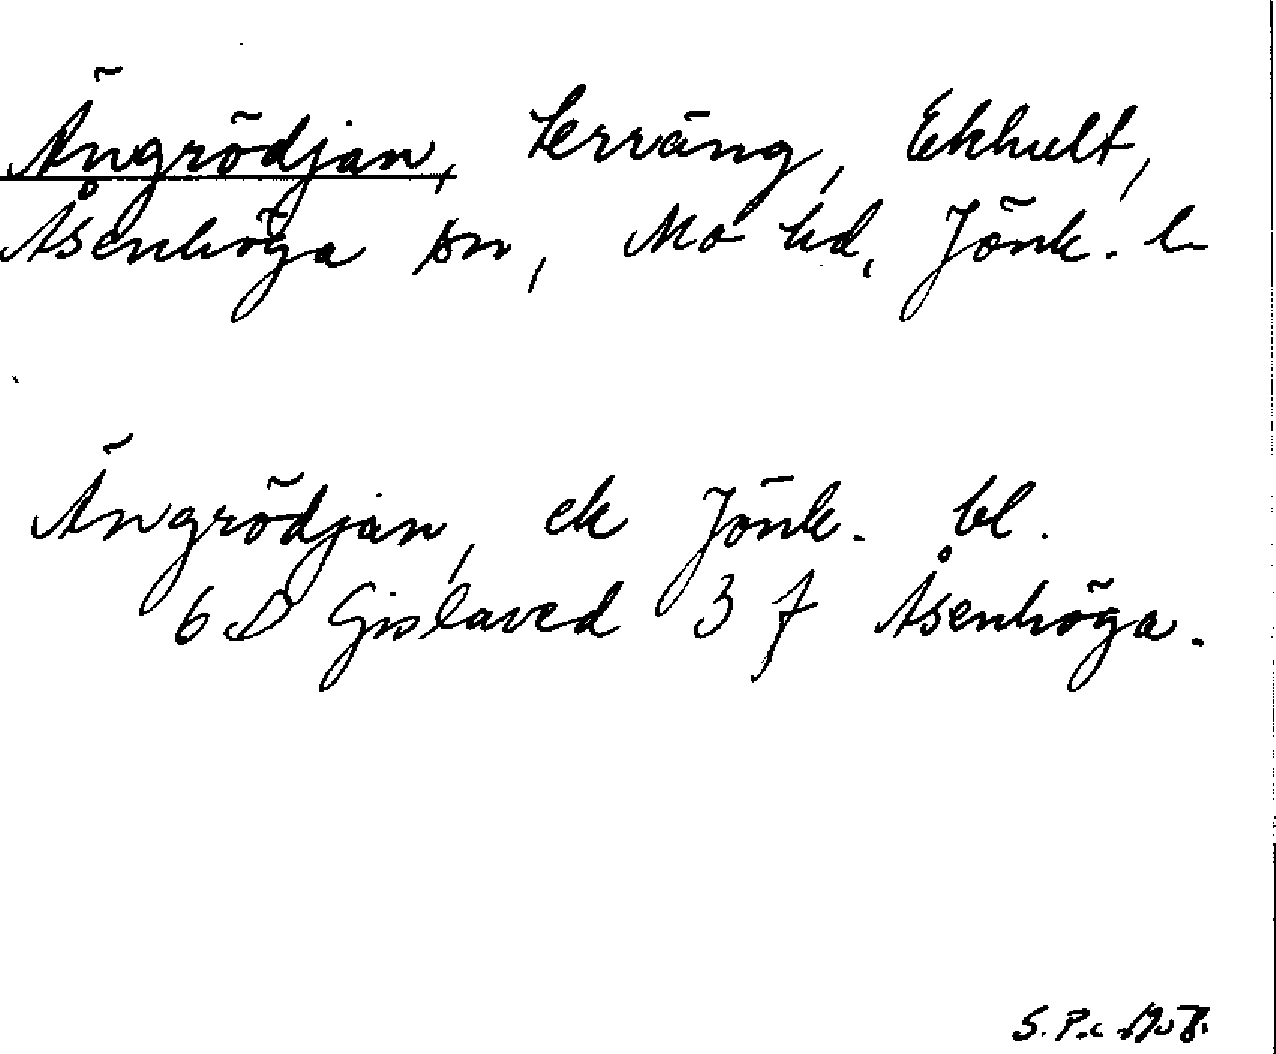 Ängrödjan, terräng, Ekhult,
Åsenhöga sn, Mo hd, Jönk. l
Ängrödjan, ek Jönk. bl.
6 D Gislaved 3 f Åsenhöga.
S. P.